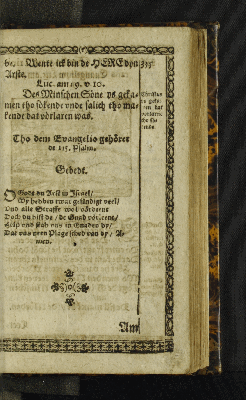 Wente ick bin de HERE dyn
Arste.
Luc. am 19. v 10.
Des Minschen Söne ys geka-
men tho sökende vnde salich tho ma-
kende dat vorlaren was.
Tho dem Evangelio gehöret
de 115. Psalm.
Gebedt.
O Godt du Arst in Jsrael/
Wy hebben twar gesündigt veel/
Vnd alle Straffe wol vördenet
Doch du bist de/ de Gnad vörleent/
Help vnd stah vns in Gnaden by/
Dat vns geen Plage sched van dy/ A-
men.
Am